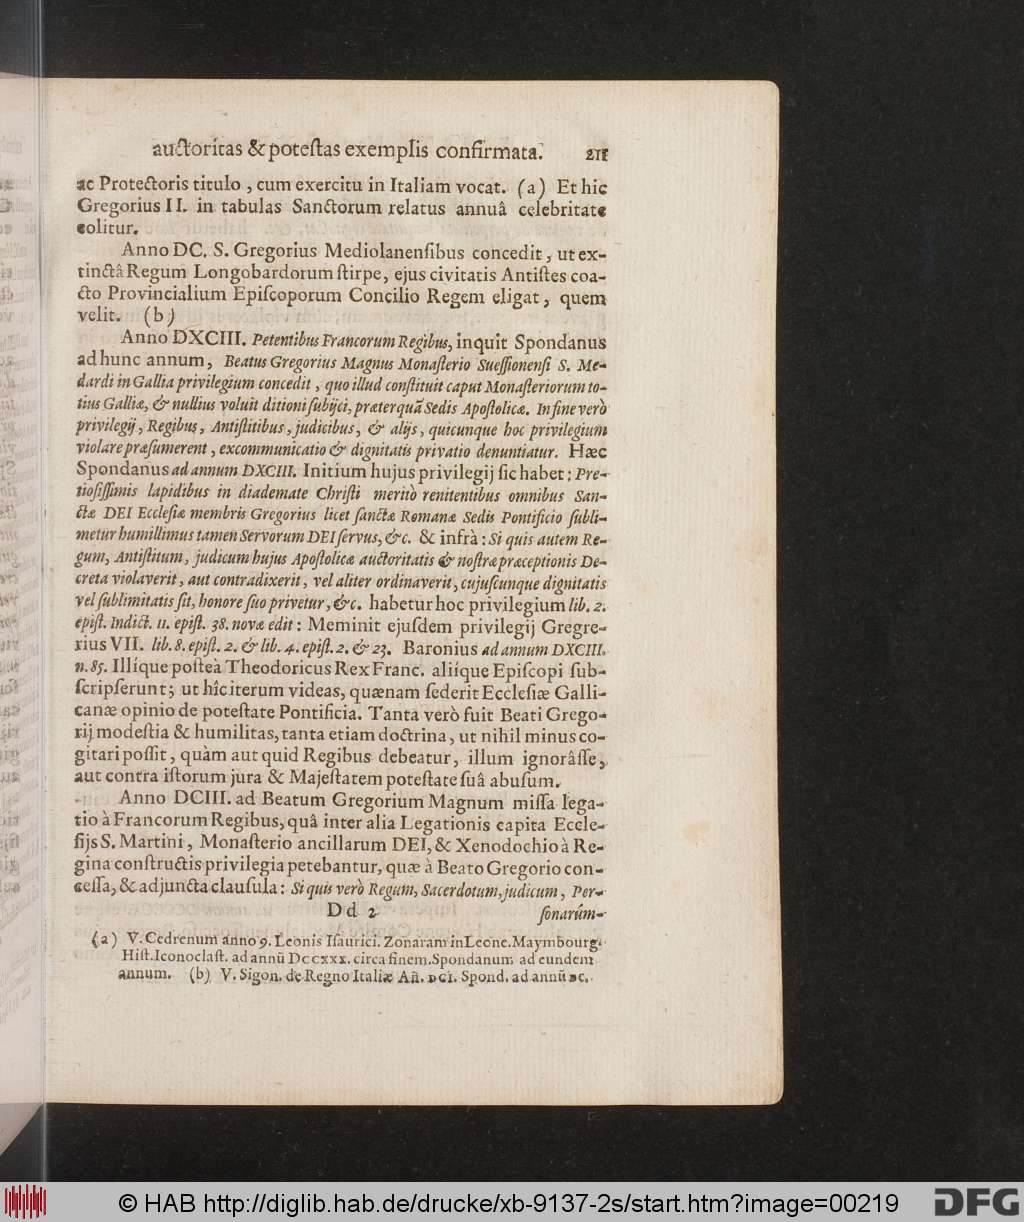 auctoritas & potestas exemplis confirmata. 211
ac Protectoris titulo, cum exercitu in Italiam vocat. (a) Et hic
Gregorius II. in tabulas Sanctorum relatus annuâ celebritate
colitur.
Anno DC. S. Gregorius Mediolanensibus concedit, ut ex-
tinctâ Regum Longobardorum stirpe, ejus civitatis Antistes coa-
cto Provincialium Episcoporum Concilio Regem eligat, quem
velit. (b)
Anno DXCIII. Petentibus Francorum Regibus, inquit Spondanus
ad hunc annum, Beatus Gregorius Magnus Monasterio Suessionensi S. Me-
dardi in Gallia privilegium concedit, quo illud constituit caput Monasteriorum to-
tius Galliæ, & nullius voluit ditioni subijci, præterquã Sedis Apostolicæ. In fine verò
privilegij, Regibus, Antistitibus, judicibus, & alijs, quicunque hoc privilegium
violare præsumerent, excommunicatio & dignitatis privatio denuntiatur. Hæc
Spondanus ad annum DXCIII. Initium hujus privilegij sic habet: Pre-
tiosissimis lapidibus in diademate Christi meritò renitentibus omnibus San-
ctæ DEI Ecclesiæ membris Gregorius licet sanctæ Romanæ Sedis Pontificio subli-
metur humillimus tamen Servorum DEI servus, &c. & infrà: Si quis autem Re-
gum, Antistitum, judicum hujus Apostolicæ auctoritatis & nostræ præceptionis De-
creta violaverit, aut contradixerit, vel aliter ordinaverit, cujuscunque dignitatis
vel sublimitatis sit, honore suo privetur, &c. habetur hoc privilegium lib. 2.
epist. Indict. 11. epist. 38. novæ edit: Meminit ejusdem privilegij Gregre-
rius VII. lib. 8. epist. 2. & lib. 4. epist. 2. & 23. Baronius ad annum DXCIII.
n. 85. Illíque posteà Theodoricus Rex Franc. aliíque Episcopi sub-
scripserunt; ut hîc iterum videas, quænam sederit Ecclesiæ Galli-
canæ opinio de potestate Pontificia. Tanta verò fuit Beati Grego-
rij modestia & humilitas, tanta etiam doctrina, ut nihil minus co-
gitari possit, quàm aut quid Regibus debeatur, illum ignorâsse,
aut contra istorum jura & Majestatem potestate suâ abusum.
Anno DCIII. ad Beatum Gregorium Magnum missa lega-
tio à Francorum Regibus, quâ inter alia Legationis capita Eccle-
sijs S. Martini, Monasterio ancillarum DEI, & Xenodochio à Re-
gina constructis privilegia petebantur, quæ à Beato Gregorio con-
cessa, & adjuncta clausula: Si quis verò Regum, Sacerdotum, judicum, Per-
Dd 2 sonarúm-
(a) V. Cedrenum anno 9. Leonis Isaurici. Zonaram in Leone. Maymbourg.
Hist. Iconoclast. ad annũ DCCXXX. circa finem. Spondanum ad eundem
annum. (b) V. Sigon. de Regno Italiæ Añ. DCI. Spond. ad annũ DC.
© HAB http://diglib.hab.de/drucke/xb-9137-2s/start.htm?image=00219 DFG